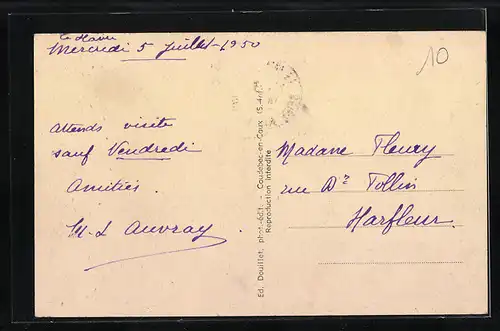 Le Havre
Mercredi 5 Juillet-1950
10
attends visite
sauf Vendredi
Amitiés.
M-L Auvray.
Ed. Douillet, phot.-édit. - Caudebec-en-Caux (S.-Inf.)
Reproduction Interdite
Madame Fleury
rue Dr Tollin
Harfleur.